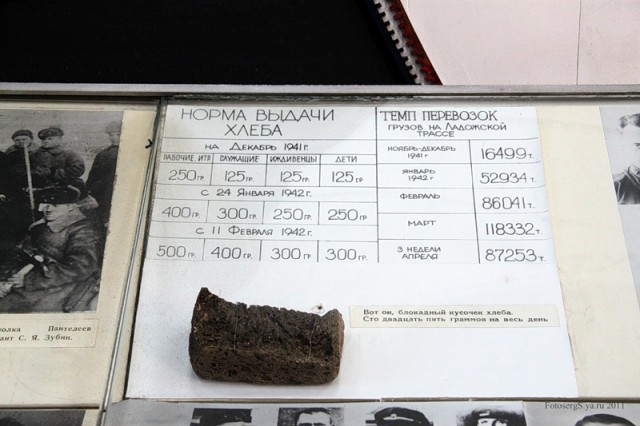 НОРМА ВЫДАЧИ
ХЛЕБА
НА ДЕКАБРЬ 1941 г.
РАБОЧИЕ ИТР СЛУЖАЩИЕ ИЖДИВЕНЦЫ ДЕТИ
250 ГР. 125 ГР. 125 ГР. 125 ГР
С 24 ЯНВАРЯ 1942 Г.
400 ГР. 300 ГР. 250 ГР. 250 ГР.
С 11 ФЕВРАЛЯ 1942 Г.
500 ГР. 400 ГР. 300 ГР 300 ГР.
ТЕМП ПЕРЕВОЗОК
ГРУЗОВ НА ЛАДОЖСКОЙ
ТРАССЕ
НОЯБРЬ-ДЕКАБРЬ
1941 Г 16499 Т.
ЯНВАРЬ
1942 Г 52934 Т.
ФЕВРАЛЬ 86041 Т.
МАРТ 118332 Т.
3 НЕДЕЛИ
АПРЕЛЯ 87253 Т.
Вот он, блокадный кусочек хлеба.
Сто двадцать пять граммов на весь день
Пантелеев
С. Я. Зубин.
FotosergS.ya.ru 2011